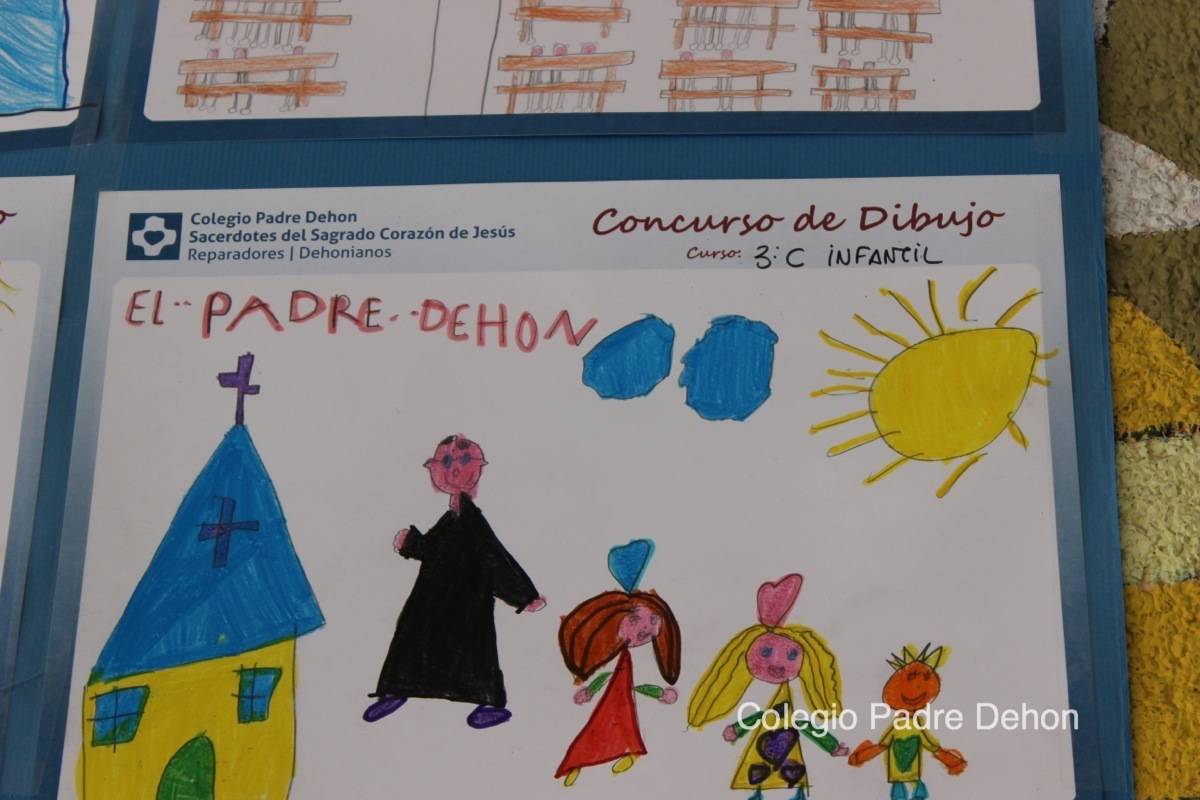 Colegio Padre Dehon
Sacerdotes del Sagrado Corazón de Jesús
Reparadores | Dehonianos
Concurso de Dibujo
Curso: 3:C iNFANTiL
EL··PADRE··DEHON
Colegio Padre Dehon